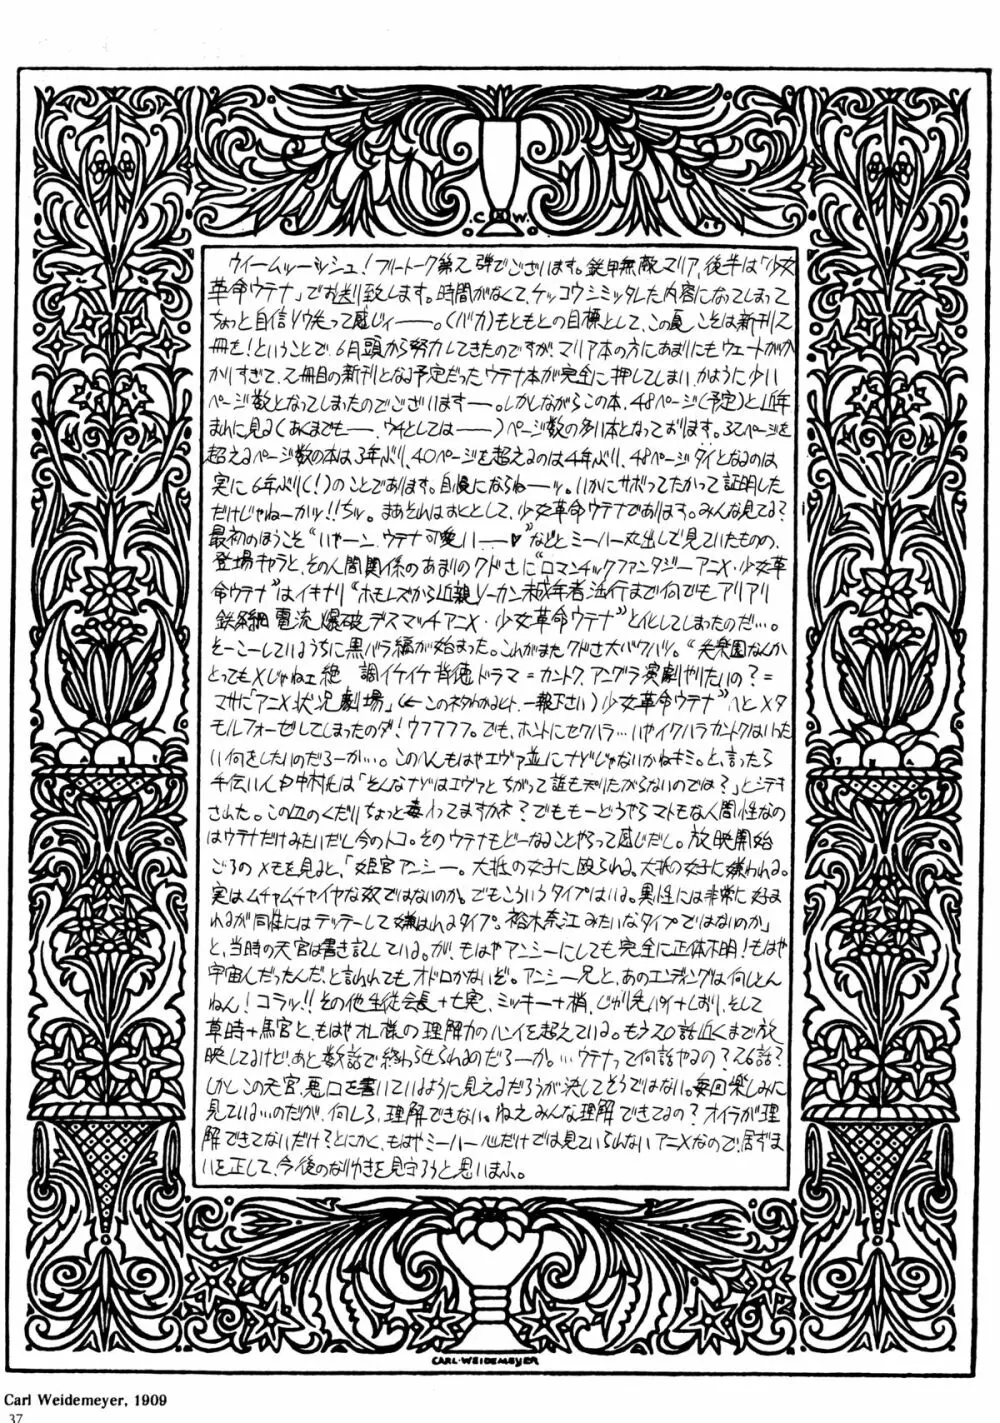 C W.
ウイームッーシュ!フリートーク第2弾でございます。鉄甲無敵マリア、後半は「少女
革命ウテナ」でお送り致します。時間がなくて、ケッコウシミッタレた内容になってしまって
ちょっと自信ソウ失って感じィ——。(バカ)もともとの目標として、この夏こそは新刊2
冊を!ということで、6月頭から努力してきたのですが、マリア本の方にあまりにもウェートがか
かりすぎて、2冊目の新刊となる予定だったウテナ本が完全に押してしまい、かように少い
ページ数となってしまったのでございますー。しかしながらこの本、48ページ(予定)と近年
まれに見る(あくまでも——、ウチとしては——)ページ数の多い本となっております。32ページを
超えるページ数の本は、3年ぶり、40ページを超えるのは4年ぶり、48ページダイとなるのは
実に6年ぶり(!)のことであります。自慢にならねーッ。いかにサボってたかって証明した
だけじゃねーかッ!!ちッ。まあそれはおくとして、少女革命ウテナであります。みんな見てる?
最初のほうこそ“いやーン、ウテナ可愛い——♥”などとミーハー丸出しで見ていたものの、
登場キャラと、その人間関係のあまりのクドさに“ロマンチックファンタジーアニメ・少女革
命ウテナ”はイキナリ“ホモレズから近親ソーカン未成年者淫行まで何でもアリアリ
鉄条網電流爆破デスマッチアニメ・少女革命ウテナ”と化してしまったのだ…。
そーこーしているうちに黒バラ編が始まった。これがまたクドさ大バクハツ。“失楽園なんか
とてもメじゃねェ絶 調イケイケ背徳ドラマ=カントク、アングラ演劇やりたいの?=
マサに「アニメ状況劇場」(←このネタわかるヒト、一報下さい)少女革命ウテナ”へとメタ
モルフォーゼしてしまったのダ!ウフフフフ。でも、ホントにセクハラ…いやイクハラカントクはいった
い何をしたいのだろーか…。このへんもはやエヴァ並にナゾじゃないかねキミ。と、言ったら
手伝い人の中村氏は「そんなナゾはエヴァとちがって誰も知りたがらないのでは?」とシテキ
された。この血のくだりちょっと毒わってますかネ?でももーどうやらマトモな人間性なの
はウテナだけみたいだし今のトコ。そのウテナもどーなることやらって感じだし。放映開始
ごろのメモを見ると、「姫宮アンシー。大抵の女子に殴られる。大抵の女子に嫌われる。
実はムチャムチャイヤな奴ではないのか。でもこういうタイプはいる。異性には非常に好ま
れるが同性にはテッテーして嫌われるタイプ。裕木奈江みたいなタイプではないのか」
と、当時の天宮は書き記している。が、もはやアンシーにしても完全に正体不明!もはや
宇宙人だったんだ、と言われてもオドロかないぞ。アンシー兄と、あのエンディングは何しとん
ねん!コラッ!!その他生徒会長+七実、ミッキー+梢、じゅり先パイ+しおり、そして
草時+馬宮と、もはやオレ様の理解力のハンイを超えている。もう20話近くまで放
映してるけど、あと数話で終わらせられるのだろーか。…ウテナって何話やるの?26話?
しかしこの天宮、悪口を書いているように見えるだろうが決してそうではない。毎回楽しみに
見ている…のだが、何しろ、理解できない。ねえみんな理解できてるの?オイラが理
解できてないだけ?とにかく、もはやミーハー心だけでは見ていられないアニメなので、居ずま
いを正して、今後のなりゆきを見守ろうと思いまふ。
CARL·WEIDEMEYER
Carl Weidemeyer, 1909
37